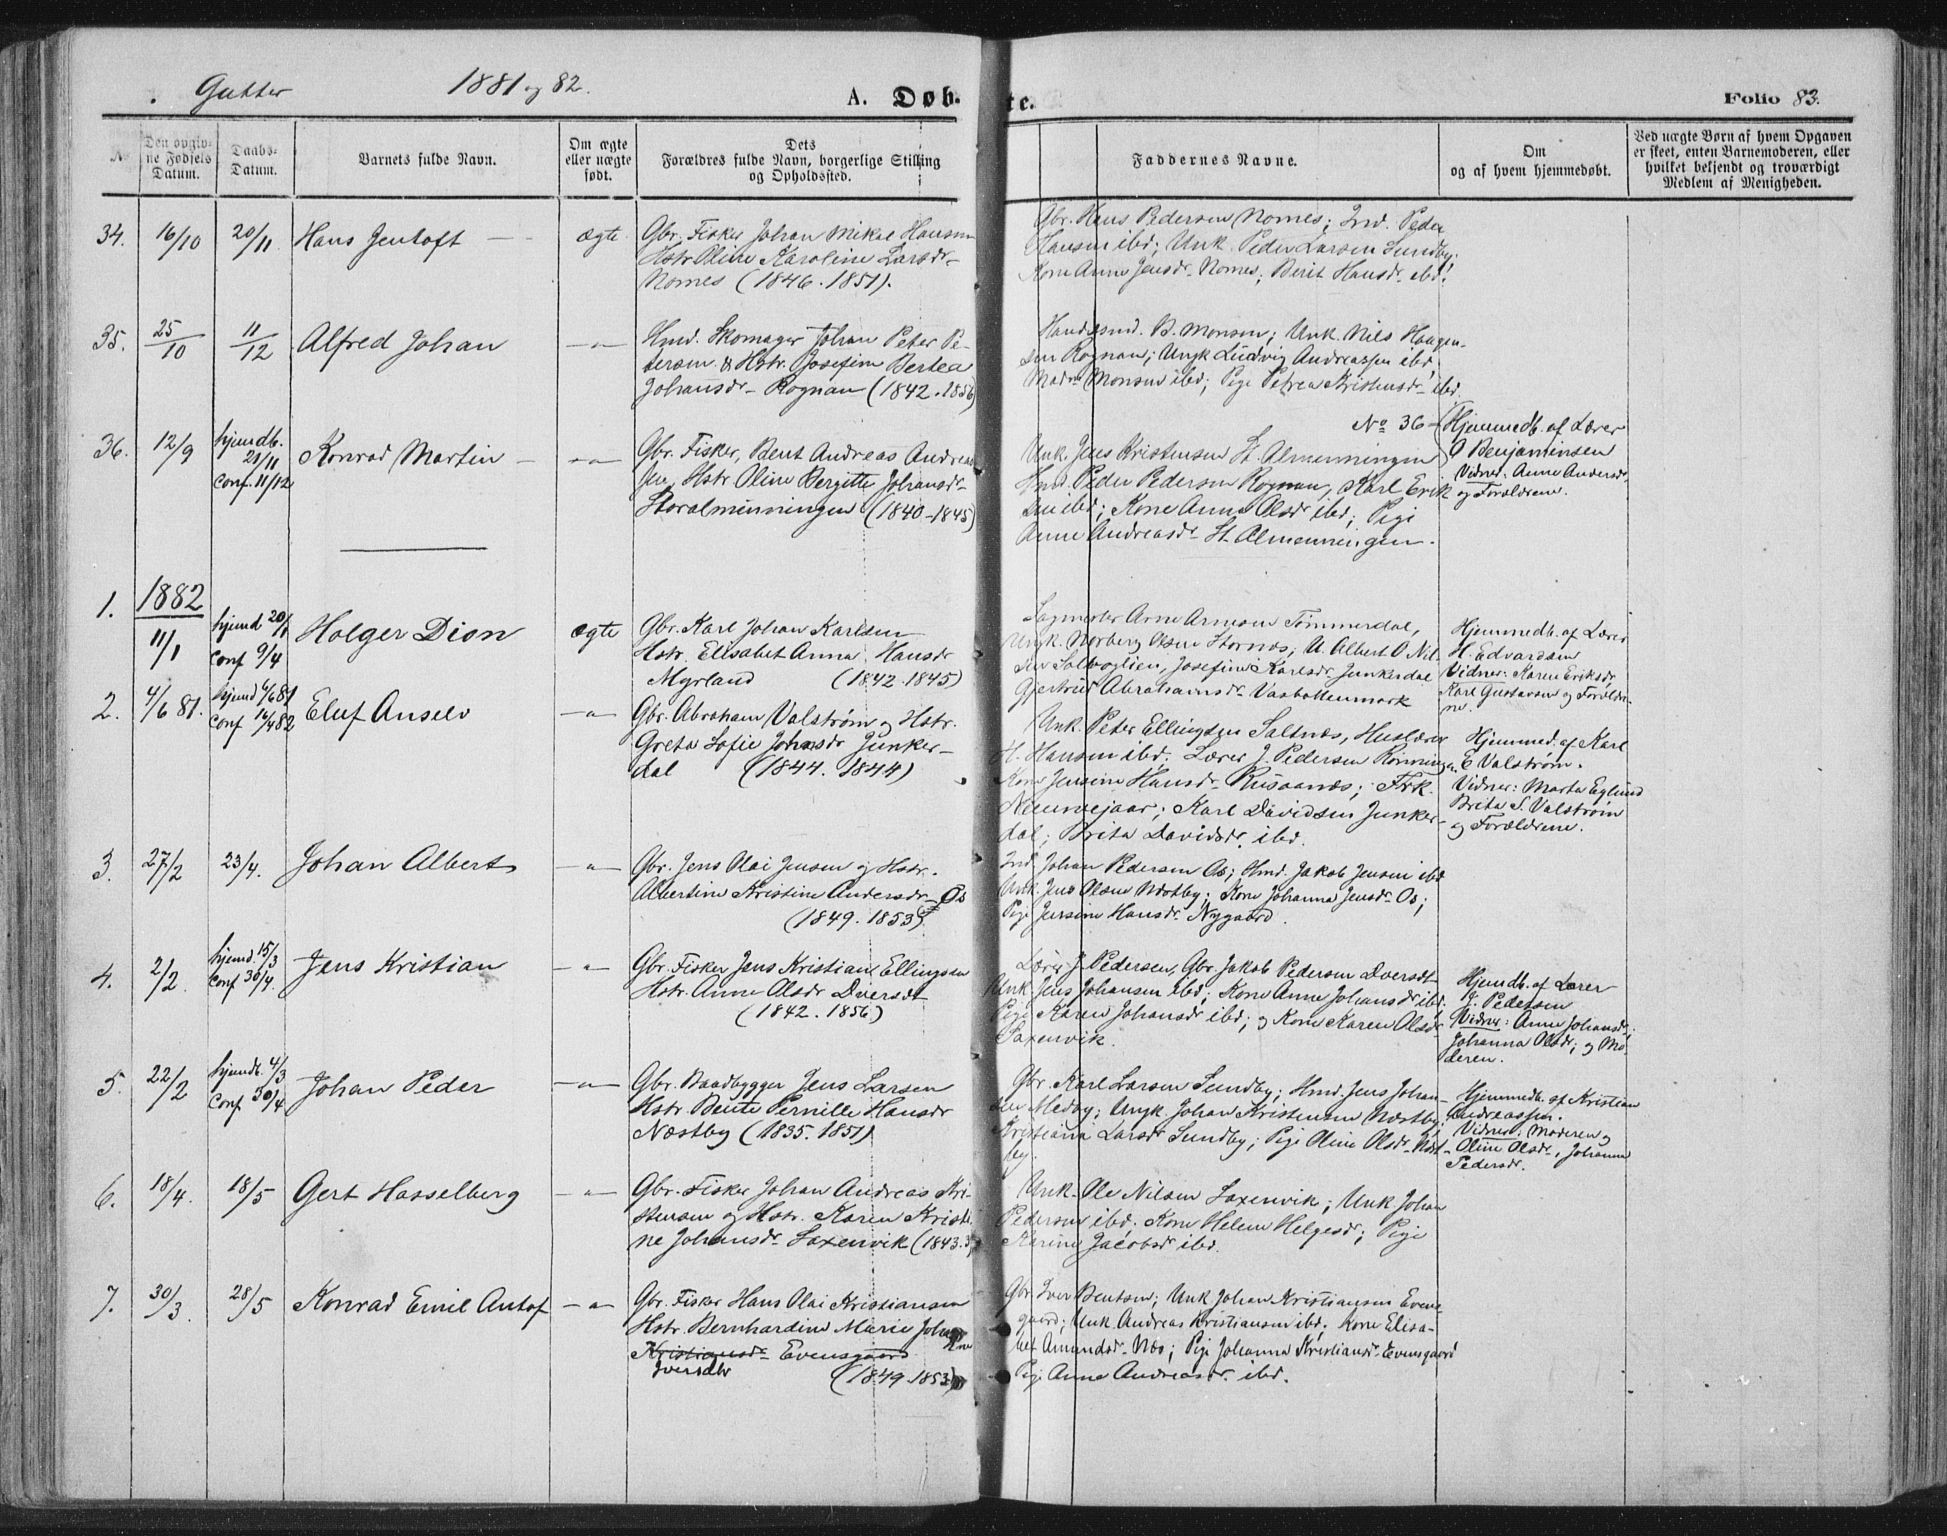 Gutter 1881 og 82. A. Døbte. Folio 83.
No. Den opgivne Fødsels Datum. Daabs-Datum. Barnets fulde Navn. Om ægte eller uægte født. Dets Forældres fulde Navn, borgerlige Stilling og Opholdssted. Faddernes Navne. Om og af hvem hjemmedøbt. Ved uægte Børn af hvem Opgaven er skeet, enten Barnemoderen, eller hvilket bekjendt og troværdigt Medlem af Menigheden.
34. 16/10 20/11 Hans Jentoft ægte
Gbr. Fisker Johan Mikal Hansen
Hstr. Oline Karoline Larsdr
Nomes (1846. 1851).
Gbr. Hans Pedersen Nomes; Ind. Peder
Hansen ibd; Unk. Peder Larsen Sundby;
Kone Anne Jensdr Nomes; Berit Hansdr ibd.
35. 25/10 11/12 Alfred Johan
Hmd. Skomager Johan Peter Pe-
tersen & Hstr. Josefine Bertea
Johansdr Rognan (1842. 1856)
Handlsmd. B. Monsen; Unk. Nils Haagen-
sen Rognan; Ungk Ludvig Andreassen ibd
Mad. Monsen ibd; Pige Petrea Kristensdr ibd.
36. 12/9 hjemdb. 21/11 Conf. 11/12 Konrad Martin
Gbr. Fisker, Bent Andreas Andreas-
sen, Hstr Oline Bergitte Johansdr
Storalminningen (1840-1845)
Unk. Jens Kristensen St. Almenningen
Hmd. Peder Pedersen Rognan, Karl Erik
sen ibd; Kone Anne Olsdr ibd; Pige
Anne Andreasdr St. Almenningen.
No 36 Hjemmedb. af Lærer
O Benjaminsen
Vidner: Anne Andersdr
og Forældrene.
1882
1. 11/1 hjemd 20/1 Conf 9/4 Holger Dion ægte
Gbr. Karl Johan Karlsen
Hstr. Elisabet Anna Hansdr
Myrland (1842. 1845)
Sagmester Arne Arnesen Tømmerdal,
Ungk. Norberg Olsen Stornes; U. Albert O Nil-
sen Solvoglien, Josefine Karlsdr Junkerdal
Gjertrud Abrahamsdr Vasbottenmark
Hjemmedb. af Lærer
H. Edvardsen
Vidner: Karen Eriksdr,
Karl Gustavsen og Forældre-
ne.
2. 4/6 81. hjemd 6/6 81 Conf 16/4 82 Eluf Anselv
Gbr. Abraham Valstrøm og Hstr.
Greta Sofie Johnsdr Junker-
dal (1844. 1844)
Unk. Peter Ellingsen Saltnes, Huslærer
H. Hansen ibd; Lærer J. Pedersen Rønningen
Kone Jensine Hansdr Rusaanes; Frk.
Nieuwejaar; Karl Davidsen Junker-
dal; Brita Davidsdr. ibd.
Hjemmed. af Karl
E Valstrøm.
Vidner: Marta Eglund
Brita S. Valstrøm
og Forældrene.
3. 27/2 23/4. Johan Albert
Gbr. Jens Olai Jensen og Hstr.
Albertine Kristine Andersdr Os
(1849. 1853)
Ind. Johan Pedersen Os; Hmd. Jakob Jensen ibd
Unk. Jens Olsen Næstby; Kone Johanna Jensdr Os;
Pige Jensine Hansdr Nygaard.
4. 2/2. hjemd. 15/3 Conf 30/4. Jens Kristian
Gbr. Fisker Jens Kristian Ellingsen
Hstr. Anne Olsdr Dversdt
(1842. 1856)
Lærer J. Pedersen, Gbr. Jakob Pedersen Dversdt
Unk. Jens Johansen ibd; Kone Anne Johansdr ibd,
Pige Karen Johansdr ibd; og Kone Karen Olsdr
Saxenvik.
Hjemdb. af Lærer
J. Pedersen
Vidner: Anne Johansdr;
Johanna Olsdr; og Mo-
deren.
5. 22/2 hjemdb. 4/3 Conf 30/4 Johan Peder
Gbr. Baadbygger Jens Larsen
Hstr Bente Pernille Hansdr
Næstby (1835. 1851)
Gbr. Karl Larsen Sundby; Hmd. Jens Johan-
sen Medby; Ungk. Johan Kristensen Næstby
Kristiana Larsdr Sundby; Pige Oline Olsdr Næst-
by.
Hjemmedb. af Kristian
Andreassen.
Vidner: Moderen og
Oline Olsdr, Johanna
Pedersdr.
6. 18/4. 18/5 Gert Hasselberg
Gbr. Fisker Johan Andreas Kri-
stensen og Hstr. Karen Kristi-
ne Johansdr Saxenvik (1843.
Unk. Ole Nilsen Saxenvik; Unk Johan
Pedersen ibd. Kone Helene Helgesdr; Pige
Karine Jacobsdr ibd.
7. 30/3. 28/5 Konrad Emil Antof
Gbr. Fisker Hans Olai Kristiansen
Hstr. Bernhardine Marie
Kristiansdr Evensgaard
Iversdtr (1849. 1853)
Gbr Iver Bentsen; Unk Johan Kristiansen Evens-
gaard; Unk. Andreas Kristiansen ibd. Kone Elisa-
bet Amundsdr Næs; Pige Johanna Kristiansdr Evensgaard
Pige Anne Andreasdr. ibd.